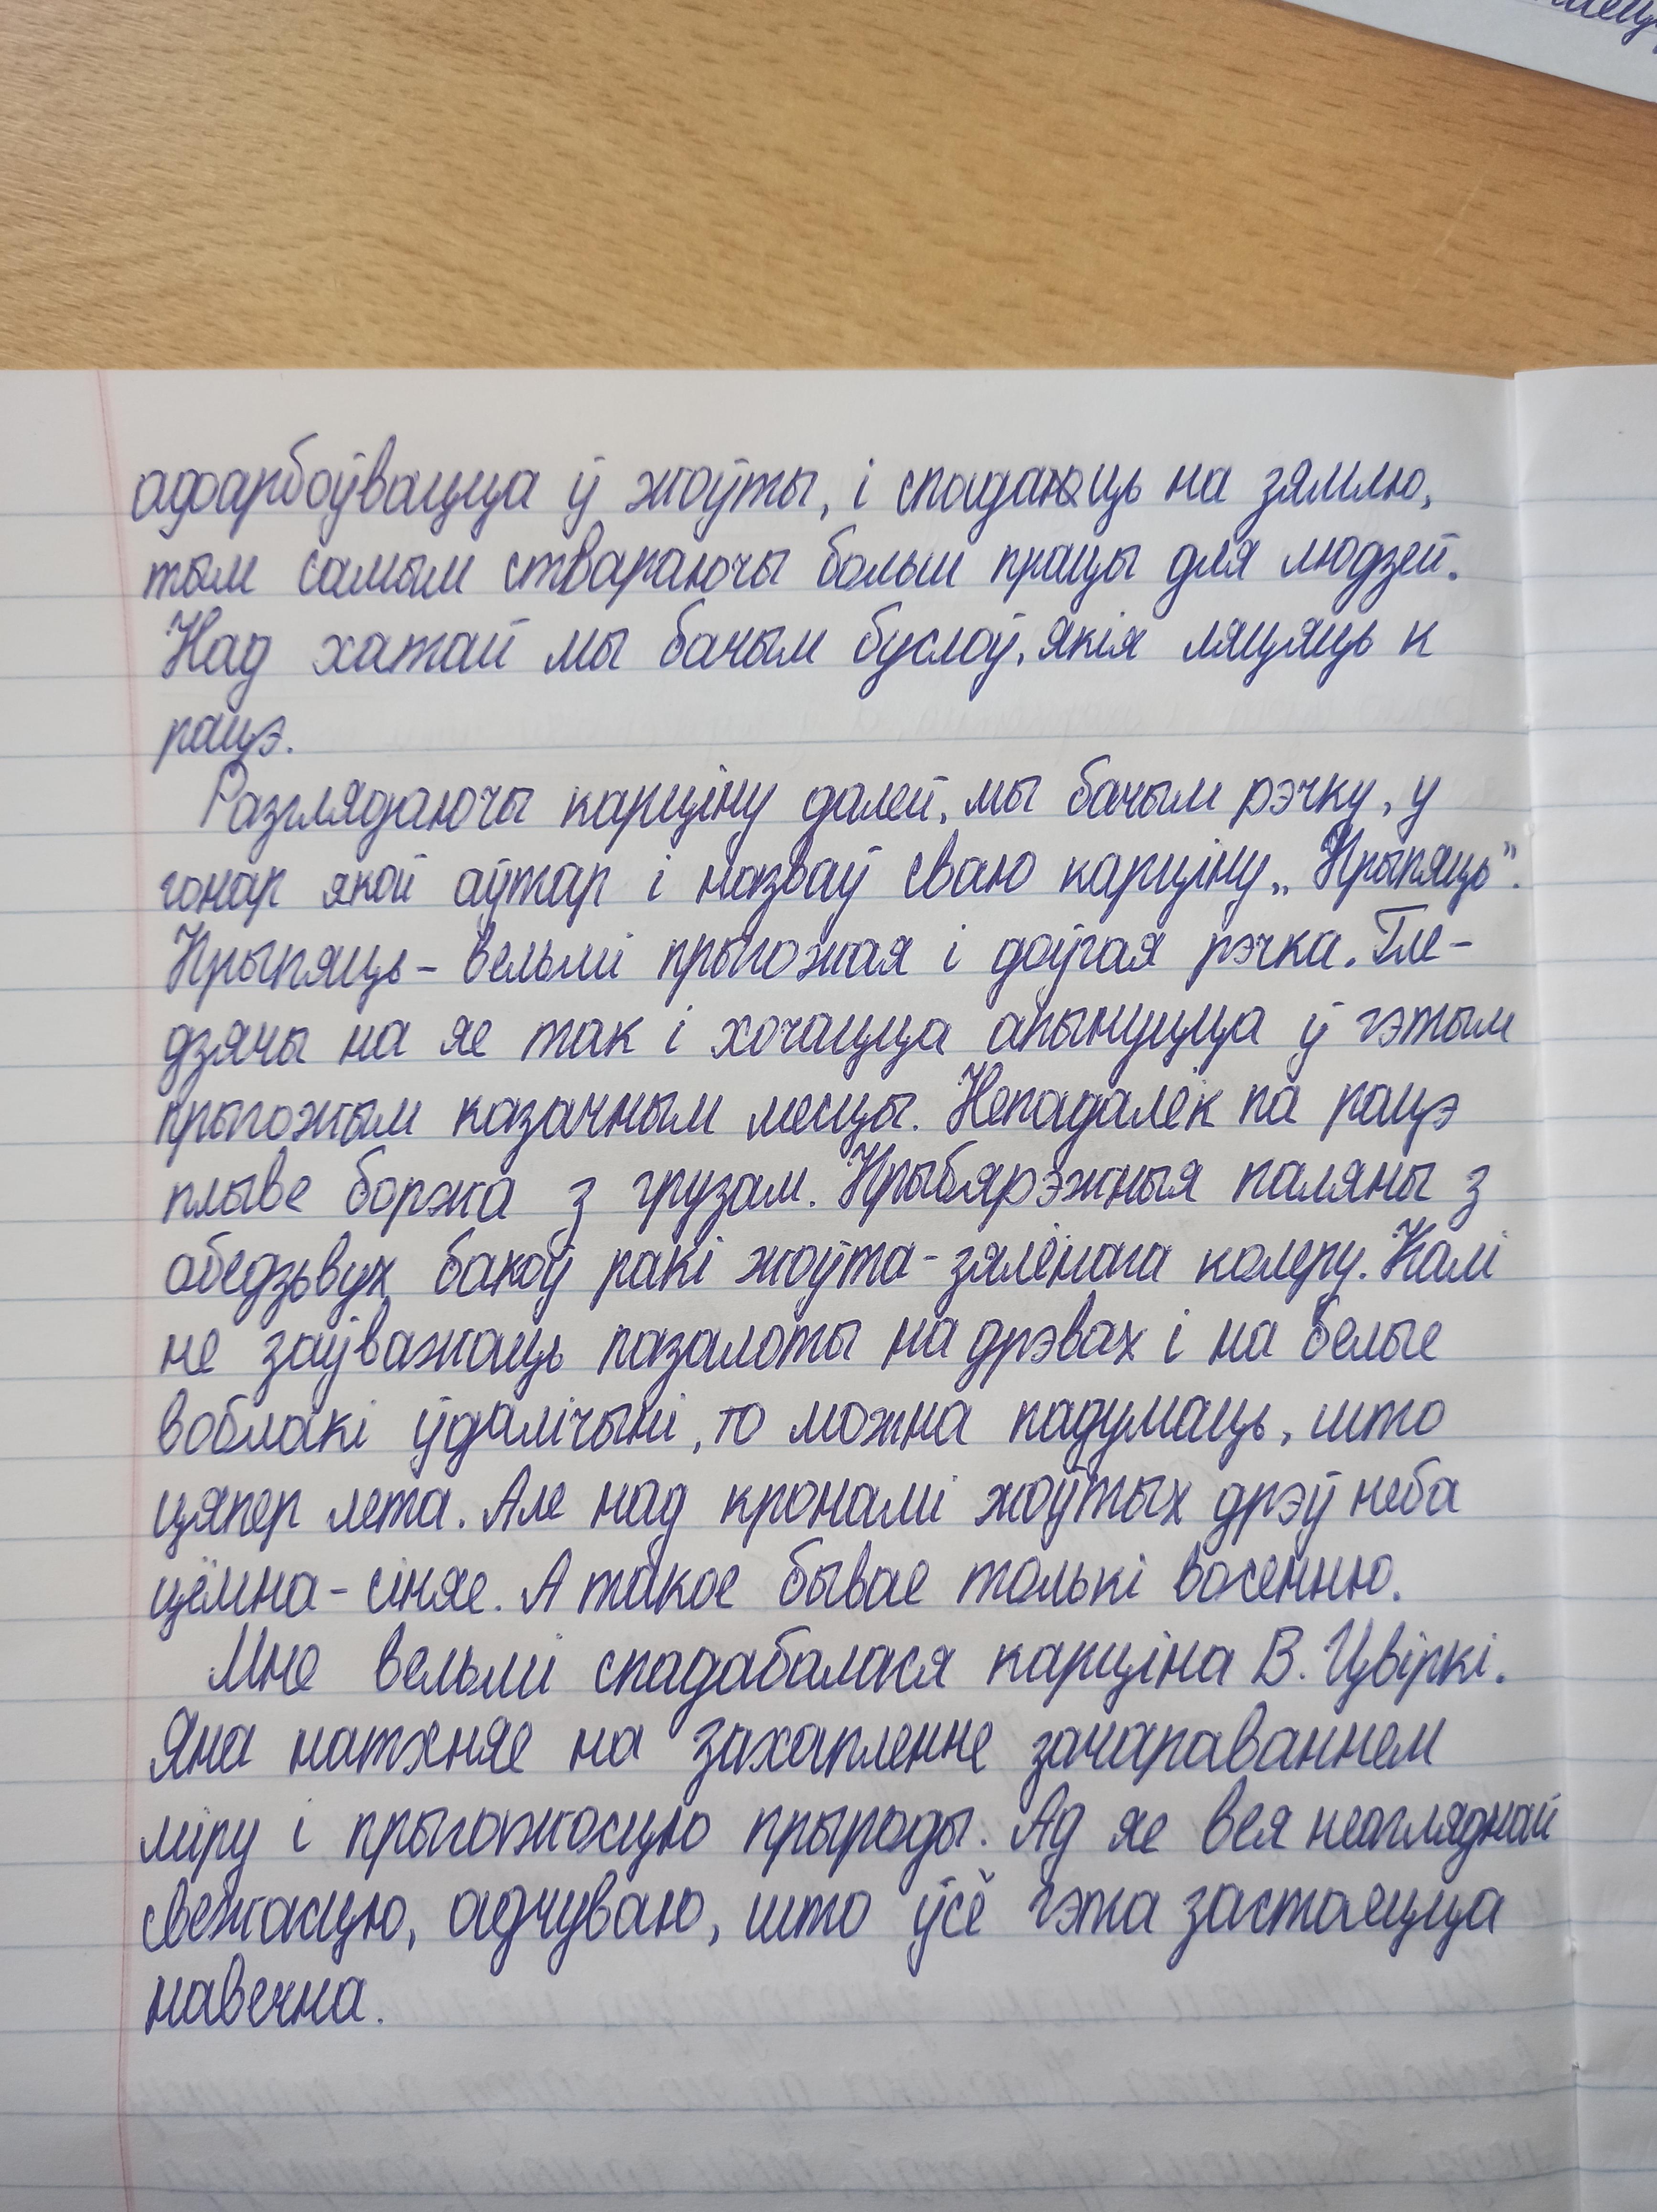 афарбоўвацца ў жоўты, і спадаюць на зямлю,
тым самым ствараючы больш працы для людзей.
Над хатай мы бачым буслоў, якія ляцяць к
рацэ.
Разглядаючы карціну далей, мы бачым рэчку, у
гонар якой аўтар і назваў сваю карціну „Прыпяць".
Прыпяць - вельмі прыгожая і доўгая рэчка. Гле-
дзячы на яе так і хочацца апынуцца ў гэтым
прыгожым казачным месцы. Непадалёк па рацэ
плыве баржа з грузам. Прыбярэжныя паляны з
абедзьвух бакоў ракі жоўта-зялёнага колеру. Калі
не заўважаць пазалоты на дрэвах і на белые
воблакі ўдалічыні, то можна падумаць, што
цяпер лета. Але над кронамі жоўтых дрэў неба
цёмна-сіняе. А такое бывае толькі восенню.
Мне вельмі спадабалася карціна В. Цвіркі.
Яна натхняе на захапленне зачараваннем
міру і прыгожосцю прыроды. Ад яе вея неагляднай
свежасцю, адчуваю, што ўсё гэта застаецца
навечна.